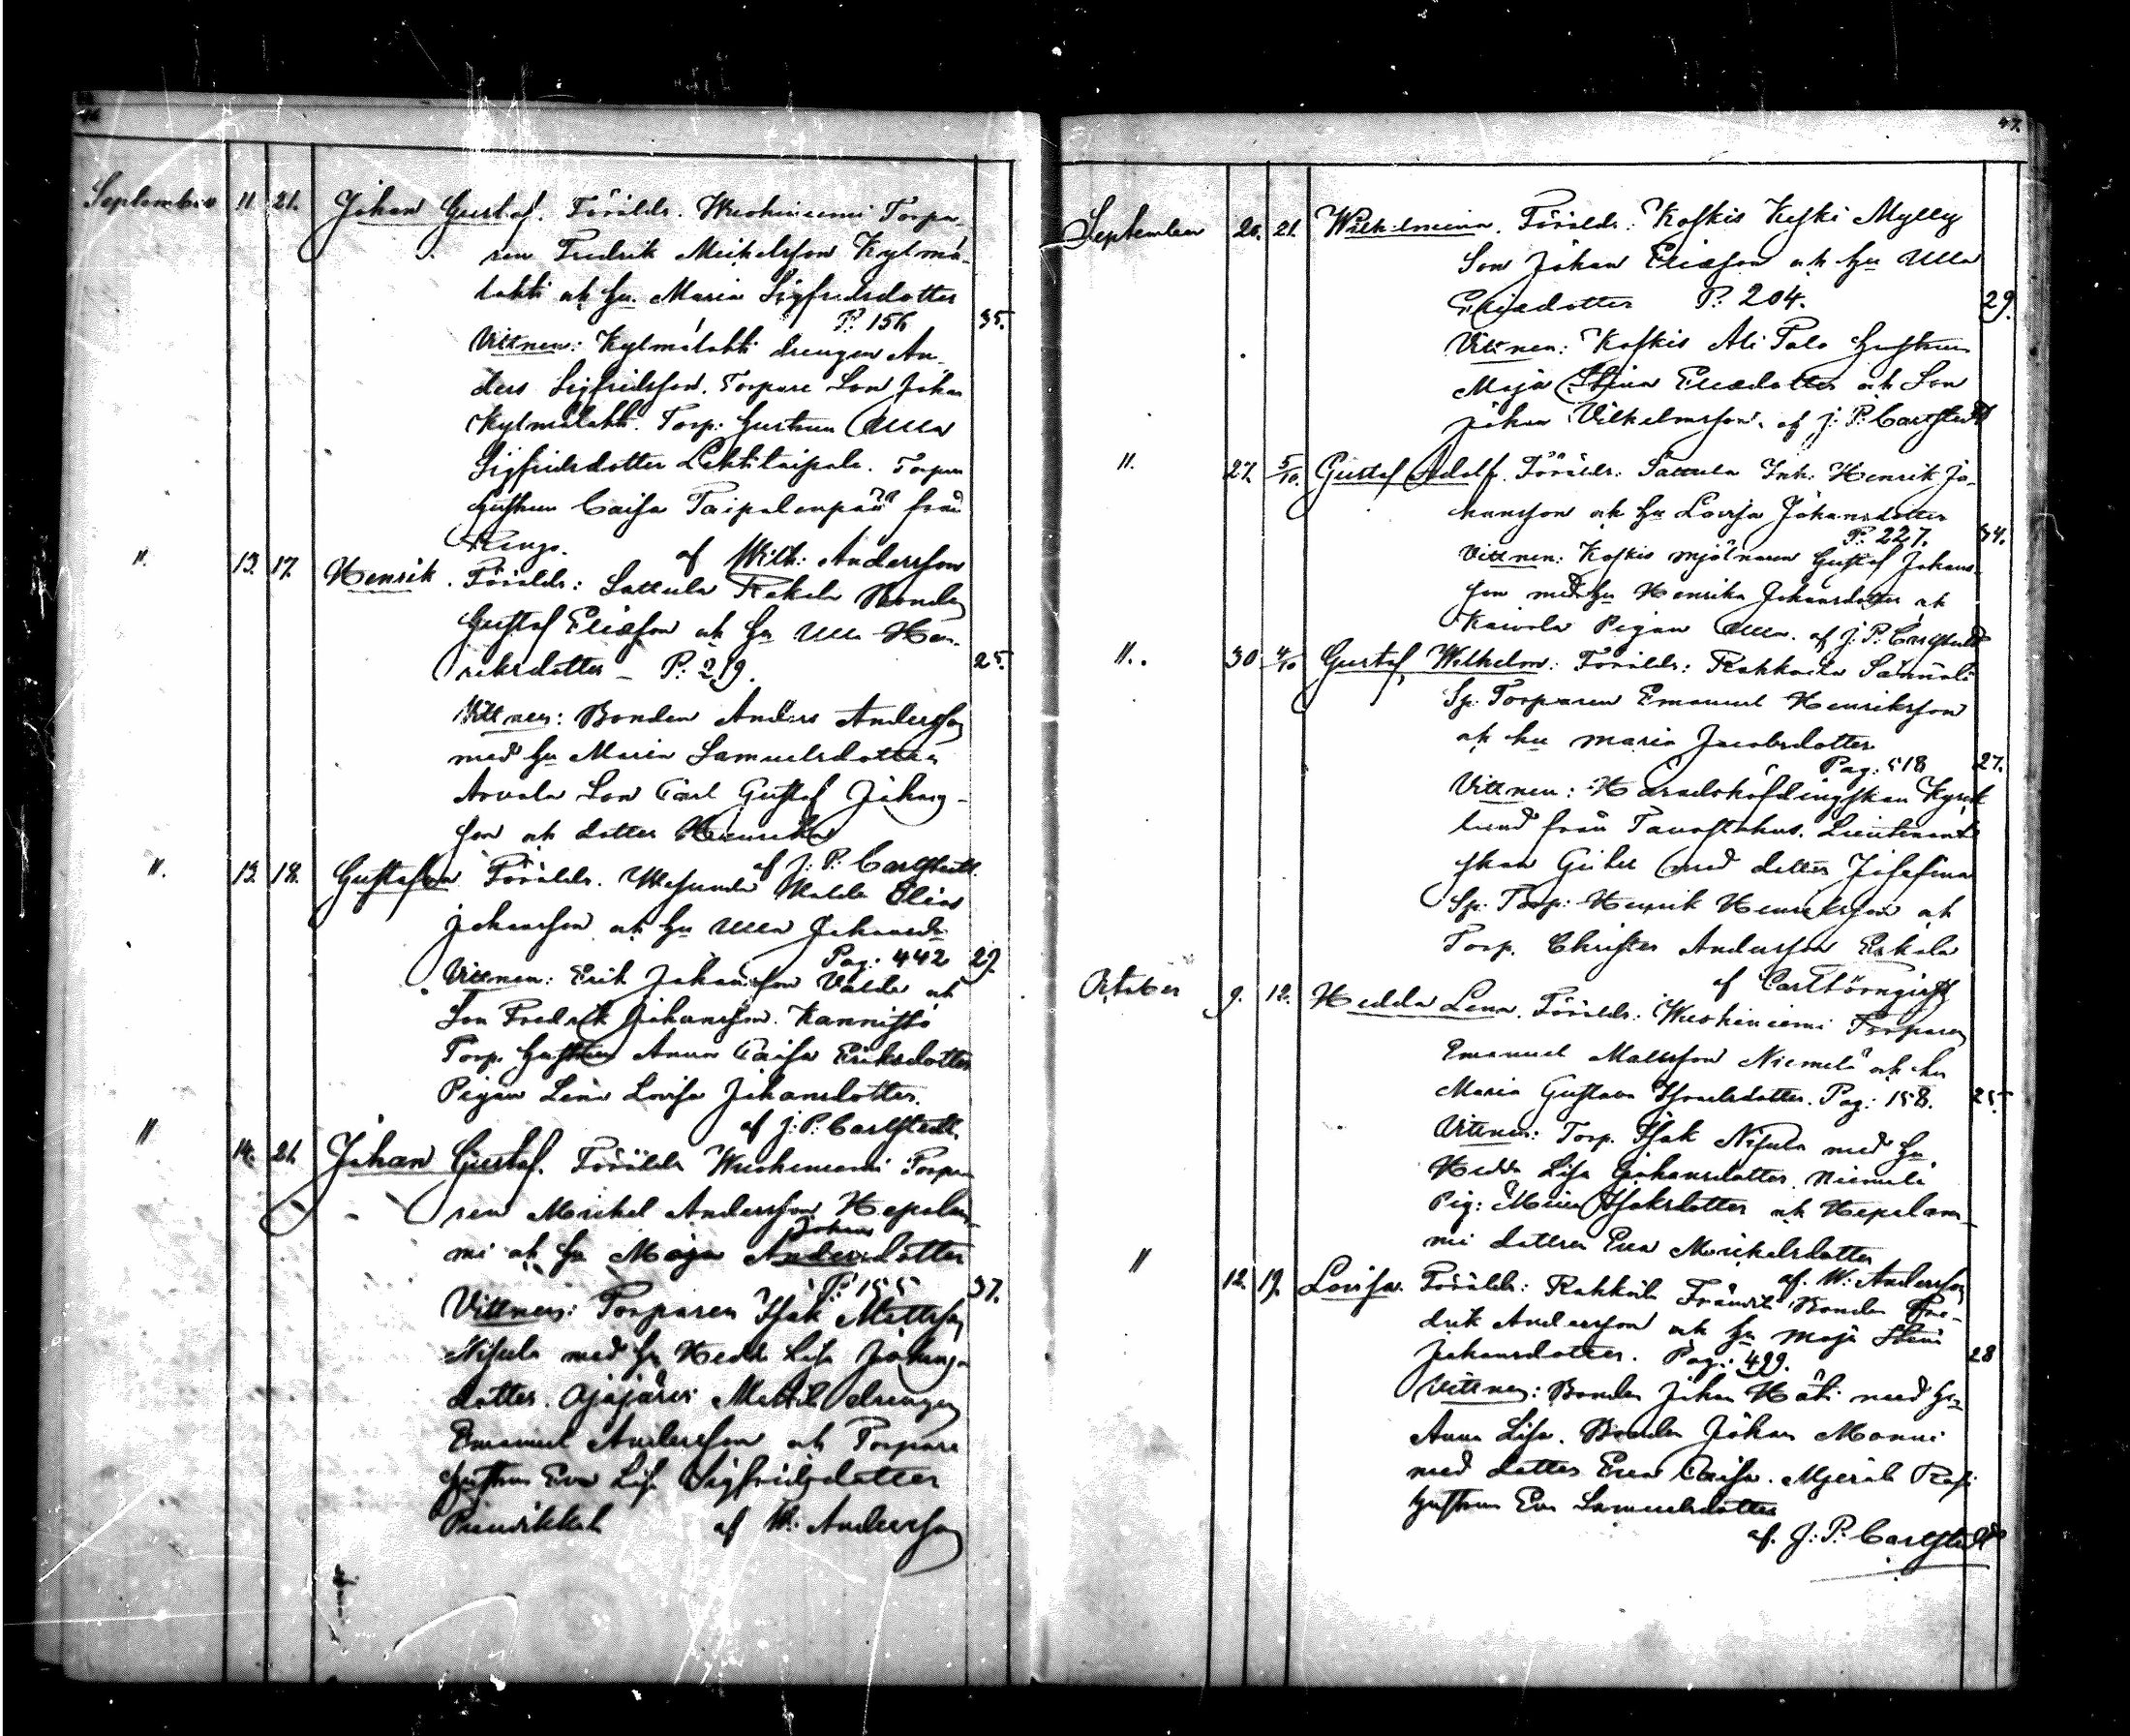 46
September 11. 21. Johan Gustaf. Föräldr. Wuohiniemi Torpa-
ren Fredrik Mickelsson Kylmä-
lahti och hu. Maria Sigfredsdotter
P. 156 35.
Vittnen: Kylmälahti drengen An-
ders Sigfridsson. Torpare Son Johan
Kylmälahti. Torp: hustrun Ulla
Sigfridsdotter Lehtitaipale. Torpare
hustrun Caisa Taipalenpää från
Rengo. af Wilh: Andersson
11. 13. 17. Henrik. Föräldr: Sattula Rekola Bonden
Gustaf Eliasson och hu Ulla Hen-
riksdotter – P: 219. 25.
Vittnen: Bonden Anders Andersson
med hu Maria Samuelsdotter
Arvola Son Carl Gustaf Johans-
son och dotter Henrika
af J: P: Carlstedt.
11. 13. 18. Gustafva Föräldr. Elias
Johansson och hu Ulla Johansdr
Pag: 442 29.
Vittnen: Erik Johansson och
Son Fredrik Johansson. Kannisto
Torp. hustrun Anna Caisa Eriksdotter
Pigan Lena Lovisa Johansdotter.
af J: P: Carlstedt.
11 14. 21. Johan Gustaf. Föräldr Wuohiniemi Torpa-
ren Mickel Andersson Hepolam-
Johans
mi och hu Maja Andersdotter
P: 155 37.
Vittnen: Torparen Isak Mattsson
Nisula med hu Hedda Lisa Johans-
dotter. Ojajärvi Mattila drengen
Emanuel Andersson och Torpare
hustrun Eva Lisa Sigfridsdotter
af W: Andersson
47.
September 20. 21. Wilhelmina. Föräldr: Koskis Keski Mylly
Son Johan Eliasson och hu Ulla
Eliasdotter P: 204. 29.
Vittnen: Koskis Ali Talo hustrun
Maja Stina Eliasdotter och Son
Johan Vilhelmsson. af J: P: Carlstedt
11. 27. 5/10. Gustaf Adolf. Föräldr: Sattula Inh: Henrik Jo-
hansson och hu Lovisa Johansdotter
P: 227. 34.
Vittnen: Koskis mjölnaren Gustaf Johans-
son med hu Henrika Johansdotter och
Kaivola Pigan Ulla. af J: P: Carlstedt
11. 30 4/10 Gustaf Wilhelm: Föräldr: Rahkoila
Sp. Torparen Emanuel Henriksson
och hu Maria Jacobsdotter
Pag: 518 27.
Vittnen: Häradshöfdingskan Kyrk
lund från Tavastehus. Lieutenant
skan med dotter Josefina
Sp: Torp: Henrik Henriksson och
Torp. Christer Andersson Eskola
af Carl
October 9. 12. Hedda Lena. Föräldr: Wuohiniemi Torparen
Emanuel Mattsson Niemelä och hu
Maria Gustava Isaksdotter. Pag: 158. 25.
Vittnen: Torp. Isak Nisula med hu
Hedda Lisa Johansdotter. Niemelä
Pig: Maria Isaksdotter och Hepolam-
mi dottren Eva Mickelsdotter
af. W: Andersson
11 12. 19. Lovisa. Föräldr: Rahkoila Bonden Fre-
drik Andersson och hu Maja Stina
Johansdotter. Pag: 499. 28
Vittnen: Bonden Johan med hu
Anna Lisa. Bonden Johan Manni
med dotter Eva Caisa.
hustrun Eva Samuelsdotter
af. J: P: Carlstedt